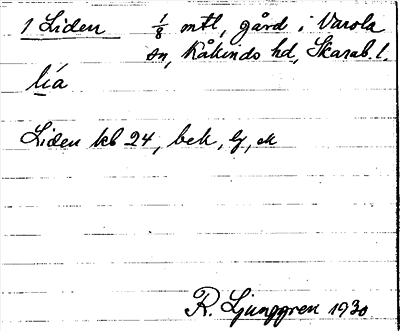 1 Liden 1/8 mtl, gård i Varola
sn, Kåkinds hd, Skarab. l.
lía
Liden kb 24, bek, lj, ek
R. Ljunggren 1930